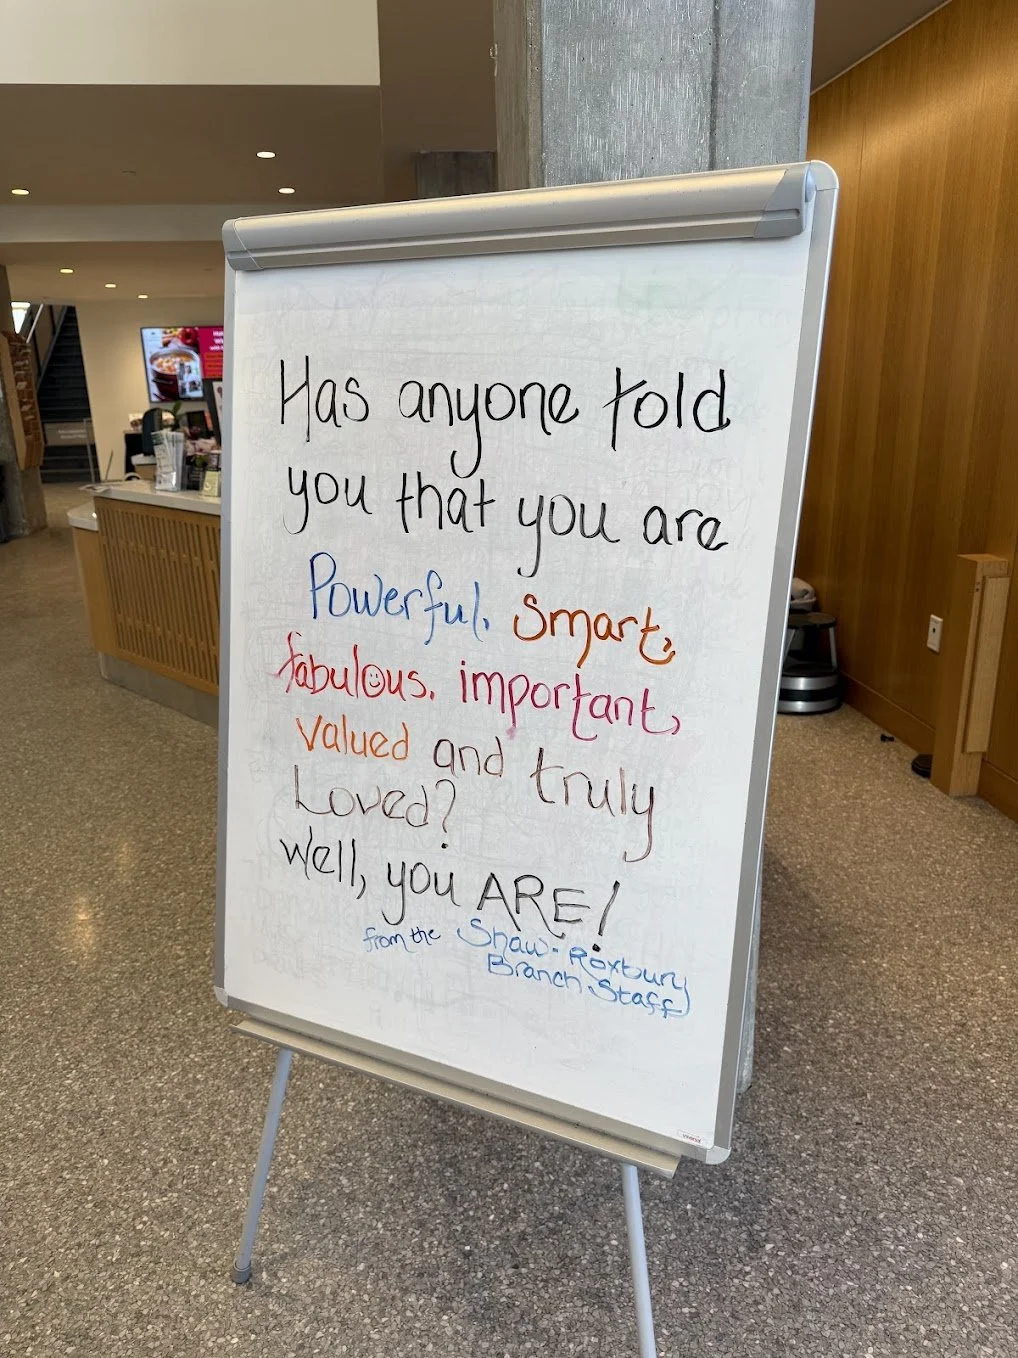 Has anyone told
you that you are
Powerful, Smart,
fabulous, important,
valued and truly
Loved?
Well, you ARE!
from the Shaw-Roxbury
Branch Staff